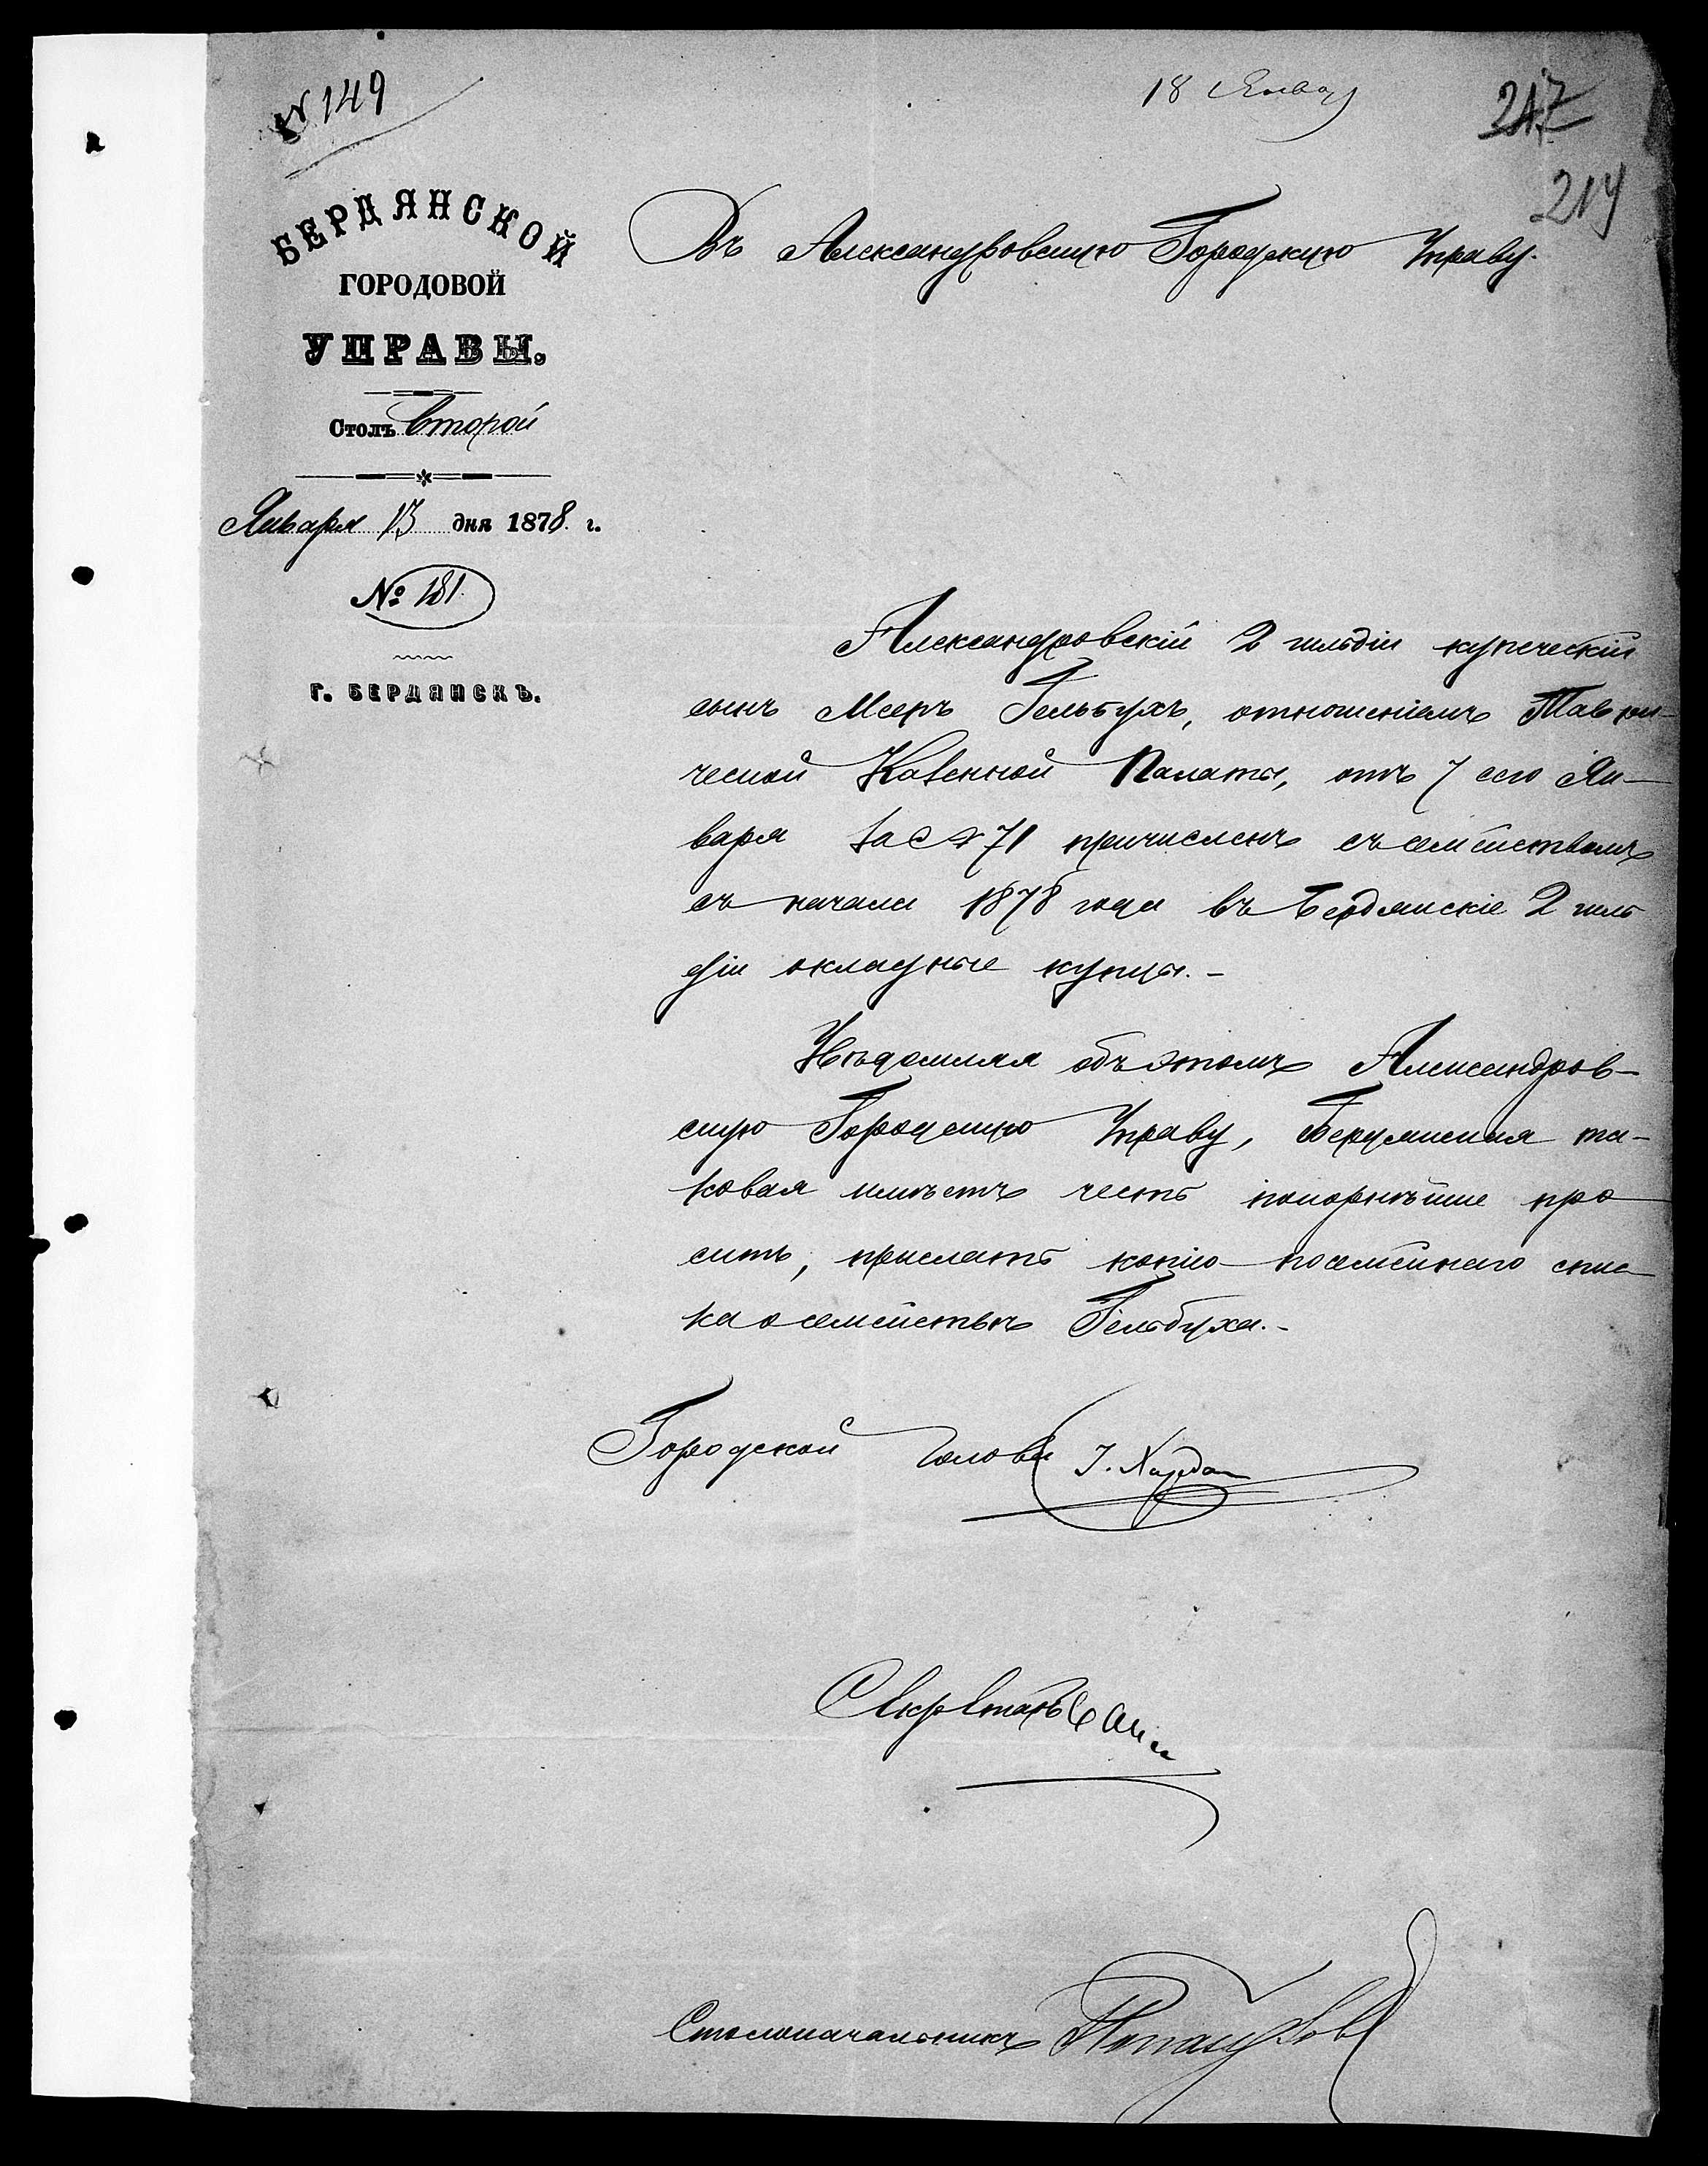 № 149
18 Янва
247
214
БЕРДЯНСКОЙ
ГОРОДОВОЙ
УПРАВЫ.
Столъ второй
Января 13 дня 1878 г.
№ 181.
г. БЕРДЯНСКЪ.
Въ Александровскую Городскую Управу.
Александровскій 2 гильдіи купеческій
сынъ Мееръ Гельбухъ, отношеніемъ Таври-
ческой Казенной Палаты, отъ 7 сего Ян-
варя за № 71 причисленъ съ семействомъ
съ начала 1878 года въ Бердянскіе 2 гиль
діи окладные купцы.-
Увѣдомляя объ этомъ Александров-
скую Городскую Управу, Бердянская та-
ковая имѣетъ честь покорнѣйше про
сить, прислать копію посемейнаго спис
ка о семействѣ Гельбуха.-
Городской голова
Секретарь
Столоначальникъ